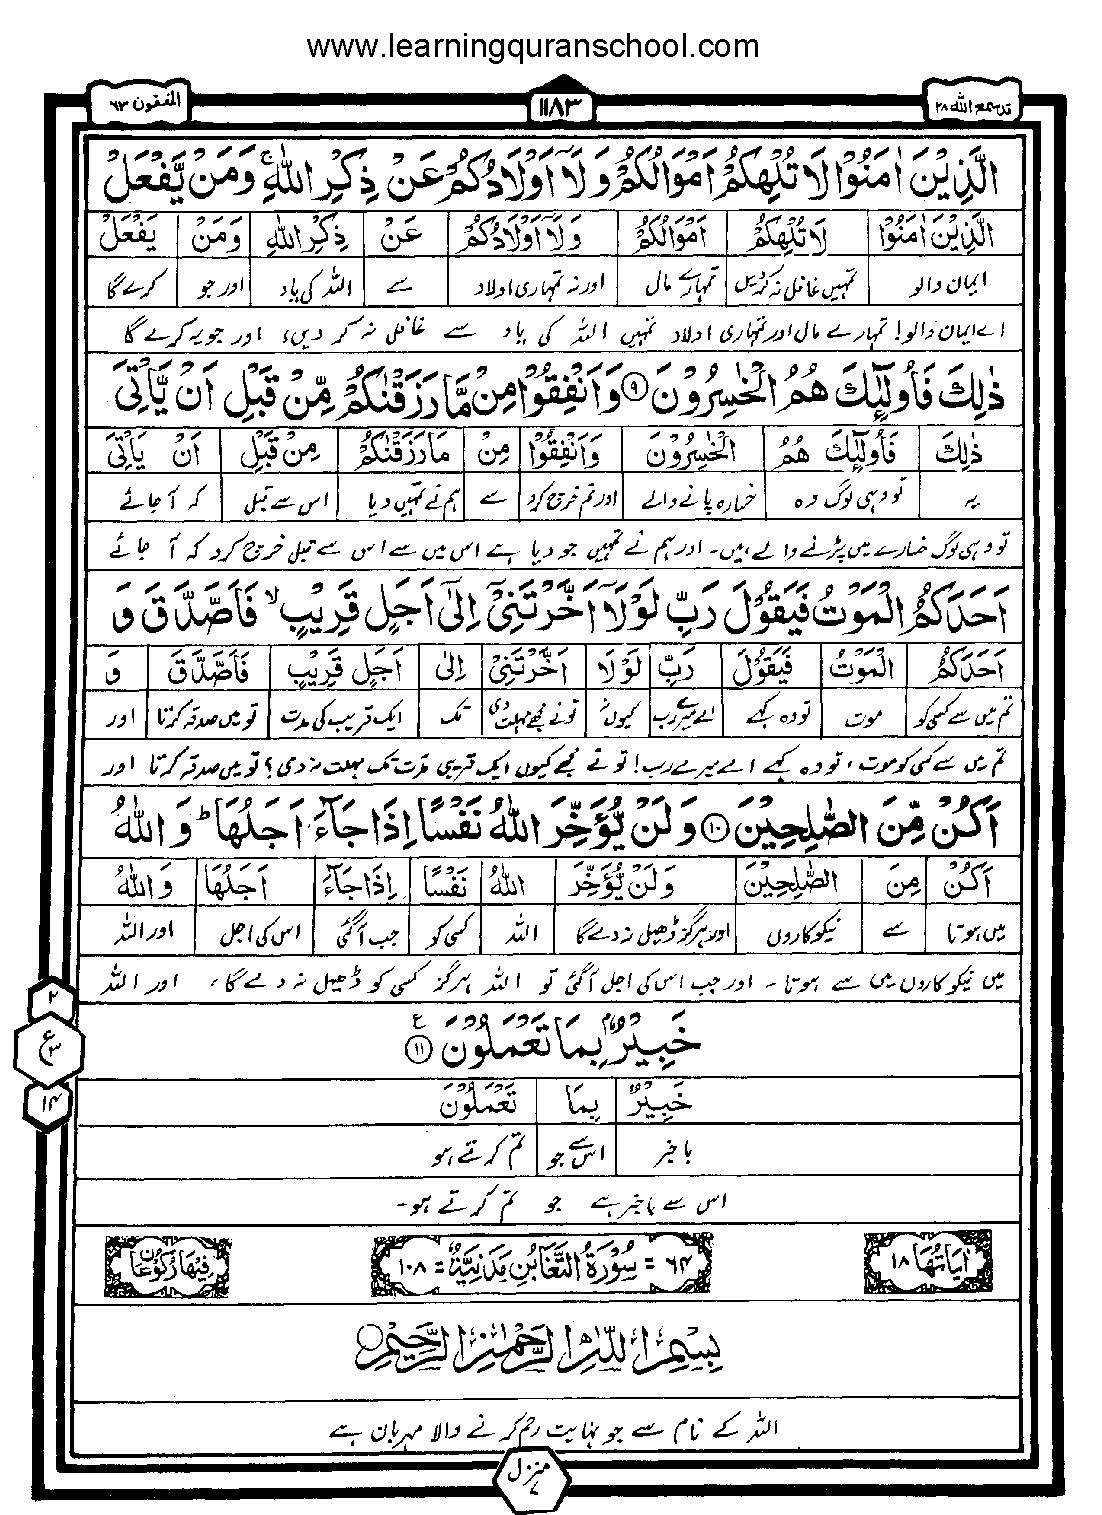 www.learningquranschool.com
قد سمع الله ٢٨
١١٨٣
المنفقون ٦٣
الَّذِيْنَ اٰمَنُوْا لَا تُلْهِكُمْ اَمْوَالُكُمْ وَلَاۤ اَوْلَادُكُمْ عَنْ ذِكْرِ اللّٰهِ ۚ وَمَنْ يَّفْعَلْ
الَّذِيْنَ اٰمَنُوْا لَا تُلْهِكُمْ اَمْوَالُكُمْ وَلَاۤ اَوْلَادُكُمْ عَنْ ذِكْرِ اللّٰهِ وَمَنْ يَفْعَلْ
ایمان والو تمہیں غافل نہ کردیں تمہارے مال اور نہ تمہاری اولاد سے اللہ کی یاد اور جو کرے گا
اے ایمان والو! تمہارے مال اور تمہاری اولاد تمہیں اللہ کی یاد سے غافل نہ کر دیں، اور جو یہ کرے گا
ذٰلِكَ فَاُولٰٓئِكَ هُمُ الْخٰسِرُوْنَ ۹ وَاَنْفِقُوْا مِنْ مَّا رَزَقْنٰكُمْ مِّنْ قَبْلِ اَنْ يَّاْتِيَ
ذٰلِكَ فَاُولٰٓئِكَ هُمُ الْخٰسِرُوْنَ وَاَنْفِقُوْا مِنْ مَا رَزَقْنٰكُمْ مِنْ قَبْلِ اَنْ يَاْتِيَ
یہ تو وہی لوگ وہ خسارہ پانے والے اور تم خرچ کرو سے ہم نے تمہیں دیا اس سے قبل کہ آجائے
تو وہی لوگ خسارے میں پڑنے والے ہیں۔ اور ہم نے تمہیں جو دیا ہے اس میں سے اس سے قبل خرچ کرو کہ آ جائے
اَحَدَكُمُ الْمَوْتُ فَيَقُوْلَ رَبِّ لَوْلَاۤ اَخَّرْتَنِيْۤ اِلٰۤى اَجَلٍ قَرِيْبٍ ۙ فَاَصَّدَّقَ وَ
اَحَدَكُمُ الْمَوْتُ فَيَقُوْلَ رَبِّ لَوْلَا اَخَّرْتَنِيْ اِلٰى اَجَلٍ قَرِيْبٍ فَاَصَّدَّقَ وَ
تم میں سے کسی کو موت تو وہ کہے اے میرے رب کیوں نہ تو نے مجھے مہلت دی تک ایک قریب کی مدت تو میں صدقہ کرتا اور
تم میں سے کسی کو موت، تو وہ کہے اے میرے رب! تو نے مجھے کیوں ایک قریبی مدت تک مہلت نہ دی؟ تو میں صدقہ کرتا اور
اَكُنْ مِّنَ الصّٰلِحِيْنَ ۱۰ وَلَنْ يُّؤَخِّرَ اللّٰهُ نَفْسًا اِذَا جَآءَ اَجَلُهَا ؕ وَاللّٰهُ
اَكُنْ مِنَ الصّٰلِحِيْنَ وَلَنْ يُّؤَخِّرَ اللّٰهُ نَفْسًا اِذَا جَآءَ اَجَلُهَا وَاللّٰهُ
میں ہوتا سے نیکوکاروں اور ہرگز ڈھیل نہ دے گا اللہ کسی کو جب آگئی اس کی اجل اور اللہ
میں نیکوکاروں میں سے ہوتا۔ اور جب اس کی اجل آگئی تو اللہ ہرگز کسی کو ڈھیل نہ دے گا، اور اللہ
خَبِيْرٌۢ بِمَا تَعْمَلُوْنَ ۱۱ ع
۲
ع ۳
۱۴
خَبِيْرٌۢ بِمَا تَعْمَلُوْنَ
باخبر اس سے جو تم کرتے ہو
اس سے باخبر ہے جو تم کرتے ہو۔
اٰيَاتُهَا ۱۸
۶۴ = سُوْرَةُ التَّغَابُنِ مَدَنِيَّةٌ = ۱۰۸
فِيْهَا رُكُوْعَانِ
بِسْمِ اللّٰهِ الرَّحْمٰنِ الرَّحِيْمِ
اللہ کے نام سے جو نہایت رحم کرنے والا مہربان ہے
منزل ۷